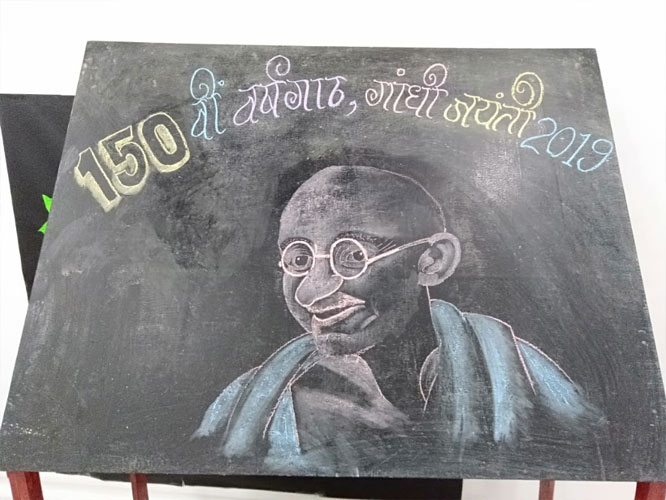 150 वीं वर्षगाठ, गांधी जयंती 2019